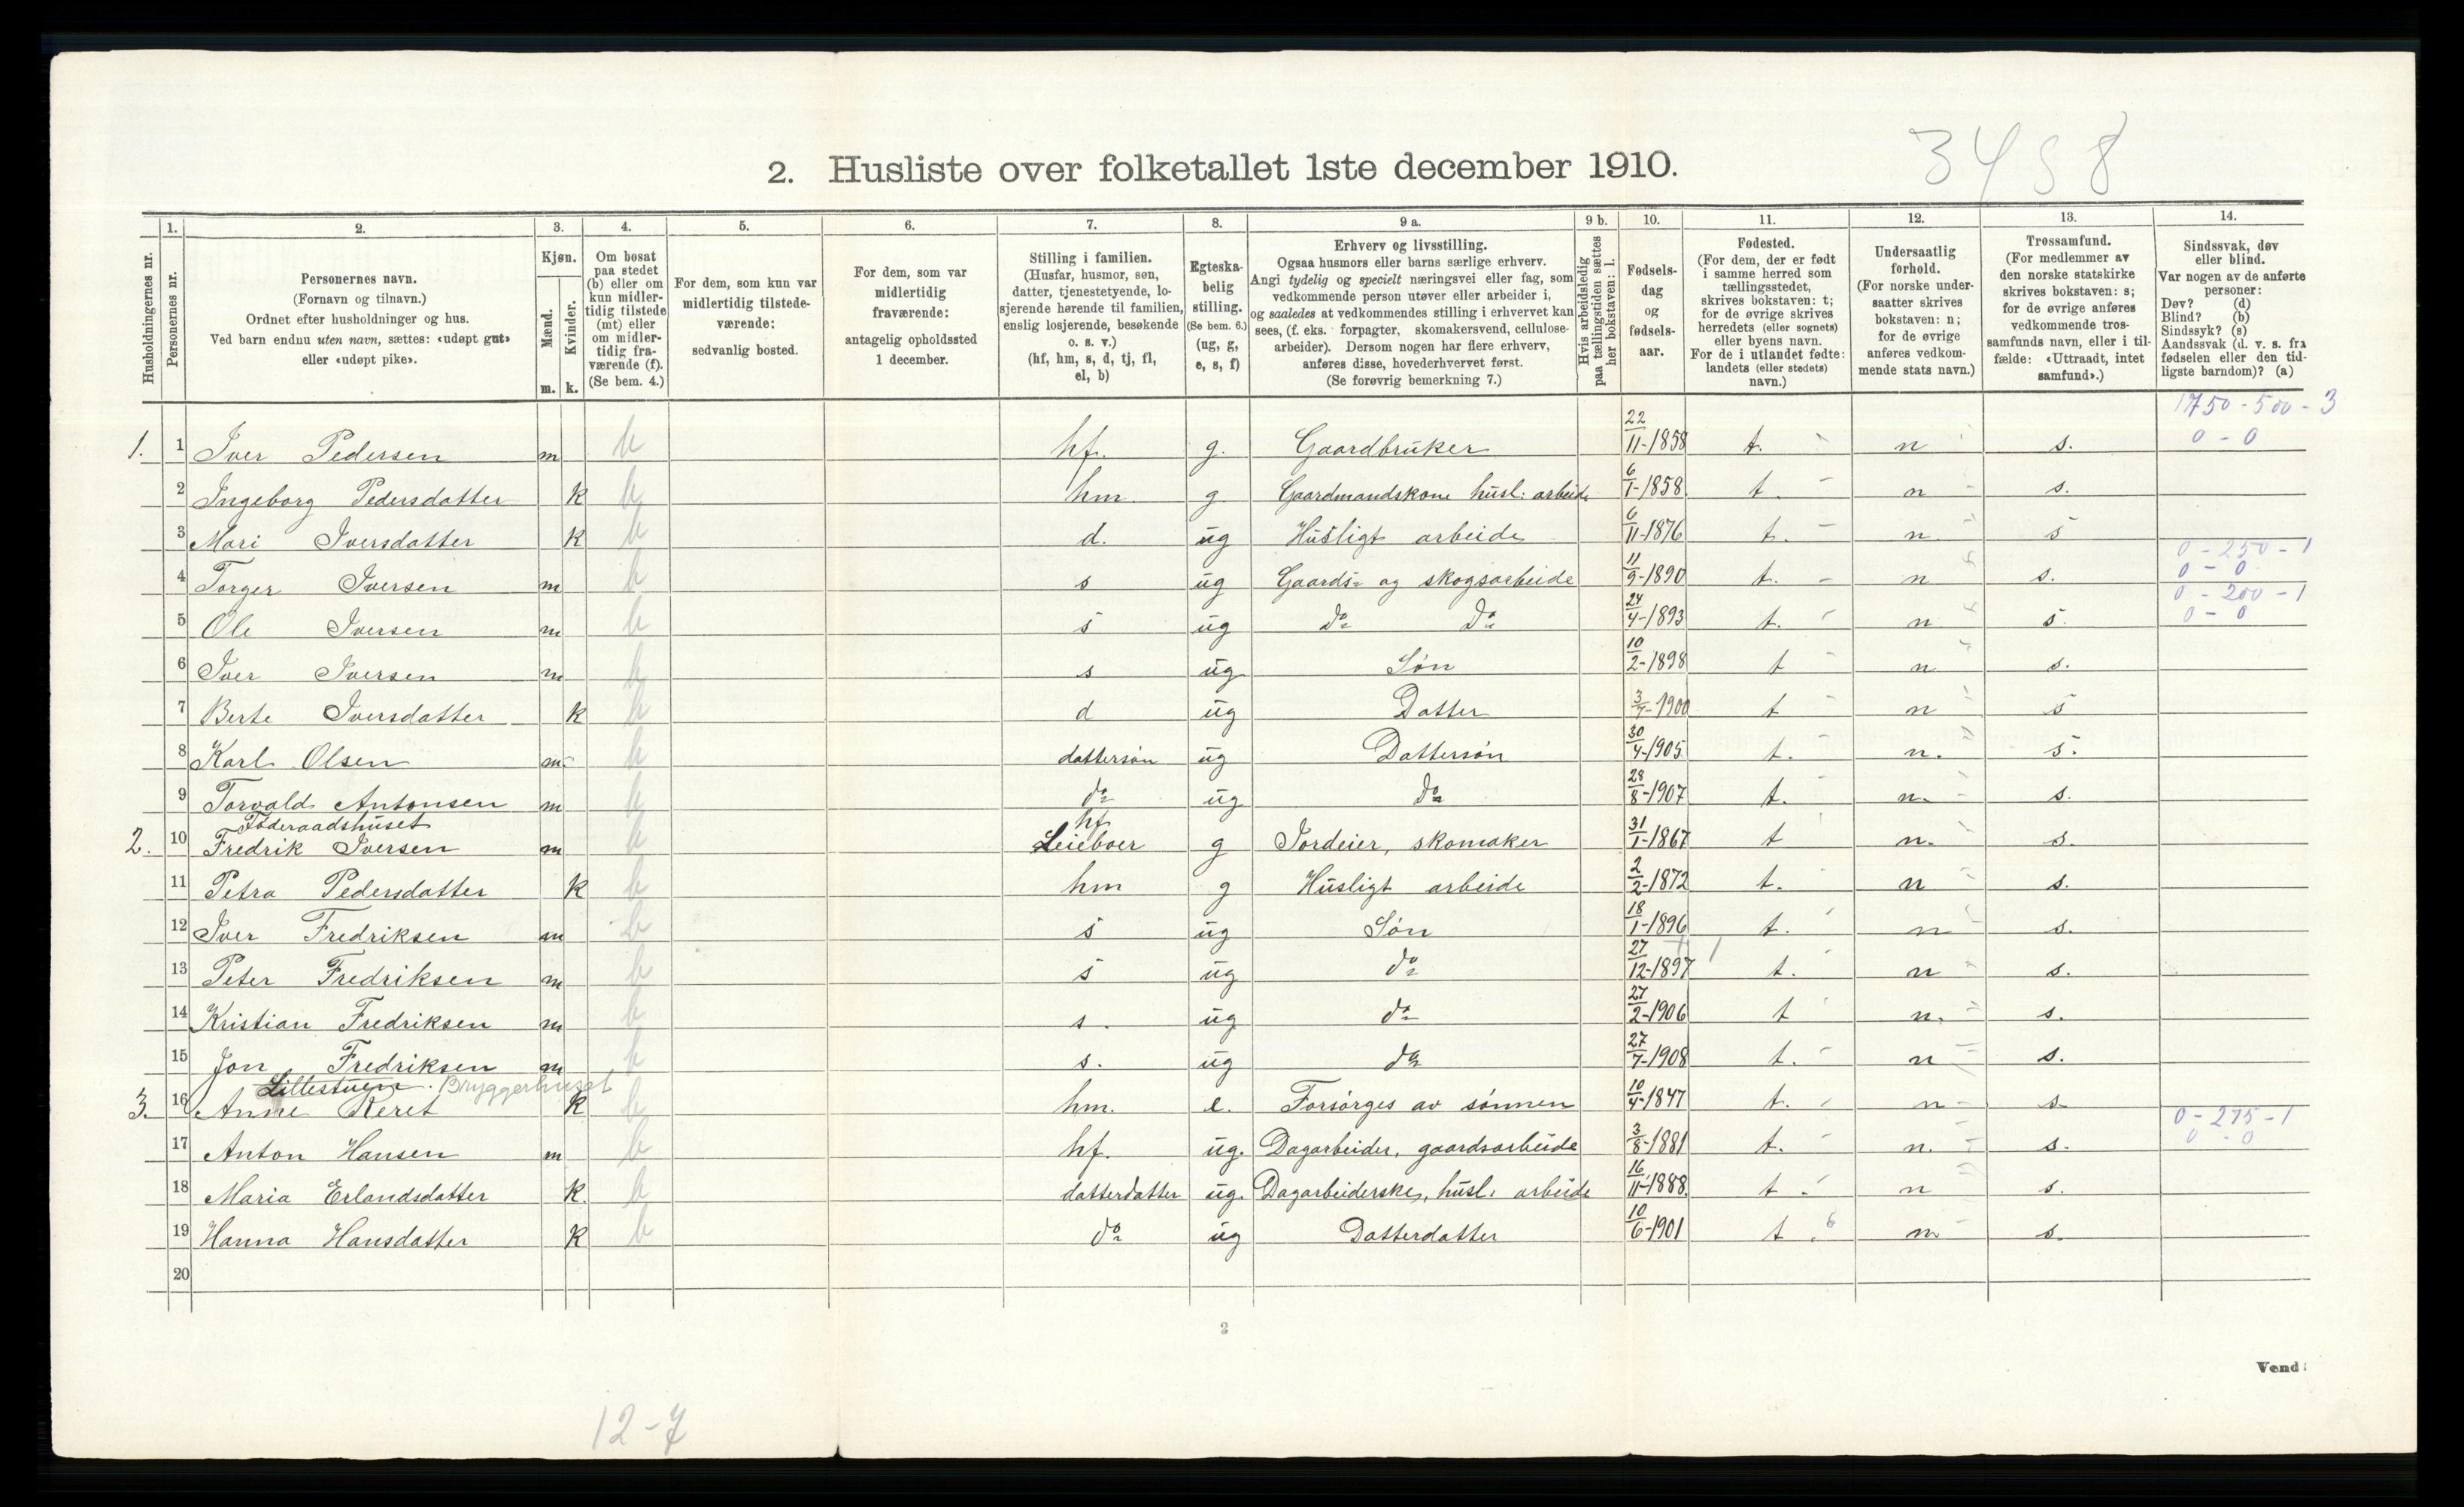 3458
2. Husliste over folketallet 1ste december 1910.
Husholdningernes nr.
1. Personernes nr.
2. Personernes navn.
(Fornavn og tilnavn.)
Ordnet efter husholdninger og hus.
Ved barn endnu uten navn, sættes: «udøpt gut»
eller «udøpt pike».
3. Kjøn.
Mænd. m.
Kvinder. k.
4. Om bosat
paa stedet
(b) eller om
kun midler-
tidig tilstede
(mt) eller
om midler-
tidig fra-
værende (f).
(Se bem. 4.)
5. For dem, som kun var
midlertidig tilstede-
værende:
sedvanlig bosted.
6. For dem, som var
midlertidig
fraværende:
antagelig opholdssted
1 december.
7. Stilling i familien.
(Husfar, husmor, søn,
datter, tjenestetyende, lo-
sjerende hørende til familien,
enslig losjerende, besøkende
o. s. v.)
(hf, hm, s, d, tj, fl,
el, b)
8. Egteska-
belig
stilling.
(Se bem. 6.)
(ug, g,
e, s, f)
9 a. Erhverv og livsstilling.
Ogsaa husmors eller barns særlige erhverv.
Angi tydelig og specielt næringsvei eller fag, som
vedkommende person utøver eller arbeider i,
og saaledes at vedkommendes stilling i erhvervet kan
sees, (f. eks. forpagter, skomakersvend, cellulose-
arbeider). Dersom nogen har flere erhverv,
anføres disse, hovederhvervet først.
(Se forøvrig bemerkning 7.)
9 b. Hvis arbeidsledig
paa tællingstiden sættes
her bokstaven: l.
10. Fødsels-
dag
og
fødsels-
aar.
11. Fødested.
(For dem, der er født
i samme herred som
tællingsstedet,
skrives bokstaven: t;
for de øvrige skrives
herredets (eller sognets)
eller byens navn.
For de i utlandet fødte:
landets (eller stedets)
navn.)
12. Undersaatlig
forhold.
(For norske under-
saatter skrives
bokstaven: n;
for de øvrige
anføres vedkom-
mende stats navn.)
13. Trossamfund.
(For medlemmer av
den norske statskirke
skrives bokstaven: s;
for de øvrige anføres
vedkommende tros-
samfunds navn, eller i til-
fælde: «Uttraadt, intet
samfund».)
14. Sindssvak, døv
eller blind.
Var nogen av de anførte
personer:
Døv? (d)
Blind? (b)
Sindssyk? (s)
Aandssvak (d. v. s. fra
fødselen eller den tid-
ligste barndom)? (a)
1750-500-3
1. 1 Iver Pedersen m b hf. g. Gaardbruker 22/11-1858 t. n s. 0-0
2 Ingeborg Pedersdatter k b hm g. Gaardmandskone husl: arbeide 6/1-1858 t. n s.
3 Mari Iversdatter k b d. ug Husligt arbeide 6/11-1876 t. n. s
0-250-1
4 Torger Iversen m b s ug Gaards- og skogsarbeide 11/9-1890 t. n s. 0-0
0-200-1
5 Ole Iversen m b s ug do do 24/4-1893 t. n s. 0-0
6 Iver Iversen m b s ug Søn 10/2-1898 t n s.
7 Berte Iversdatter k b d ug Datter 3/7-1900 t n s
8 Karl Olsen m b dattersøn ug Dattersøn 30/4-1905 t. n. s.
9 Torvald Antonsen m b do ug do 28/8-1907 t. n. s.
Føderaadshuset hf
2. 10 Fredrik Iversen m b Leieboer g Jordeier, skomaker 31/1-1867 t n. s.
11 Petra Pedersdatter k b hm g Husligt arbeide 2/2-1872 t. n s.
12 Iver Fredriksen m b s ug Søn 18/1-1896 t. n s.
13 Peter Fredriksen m b s ug do 27/12-1897 t. n s.
14 Kristian Fredriksen m b s. ug do 27/2-1906 t n. s.
15 Jon Fredriksen m b s. ug do 27/7-1908 t. n s.
Lillestuen. Bryggerhuset
3. 16 Anne Keret k b hm. e. Forsørges av sønnen 10/4-1847 t. n s.
0-275-1
17 Anton Hansen m b hf. ug. Dagarbeider, gaardsarbeide 3/8-1881 t. n. s. 0-0
18 Maria Erlandsdatter k. b datterdatter ug. Dagarbeiderske, husl: arbeide 16/11-1888. t. n s.
19 Hanna Hansdatter k b do ug Datterdatter 10/6-1901 t. n s.
20
2
Vend!
12-7